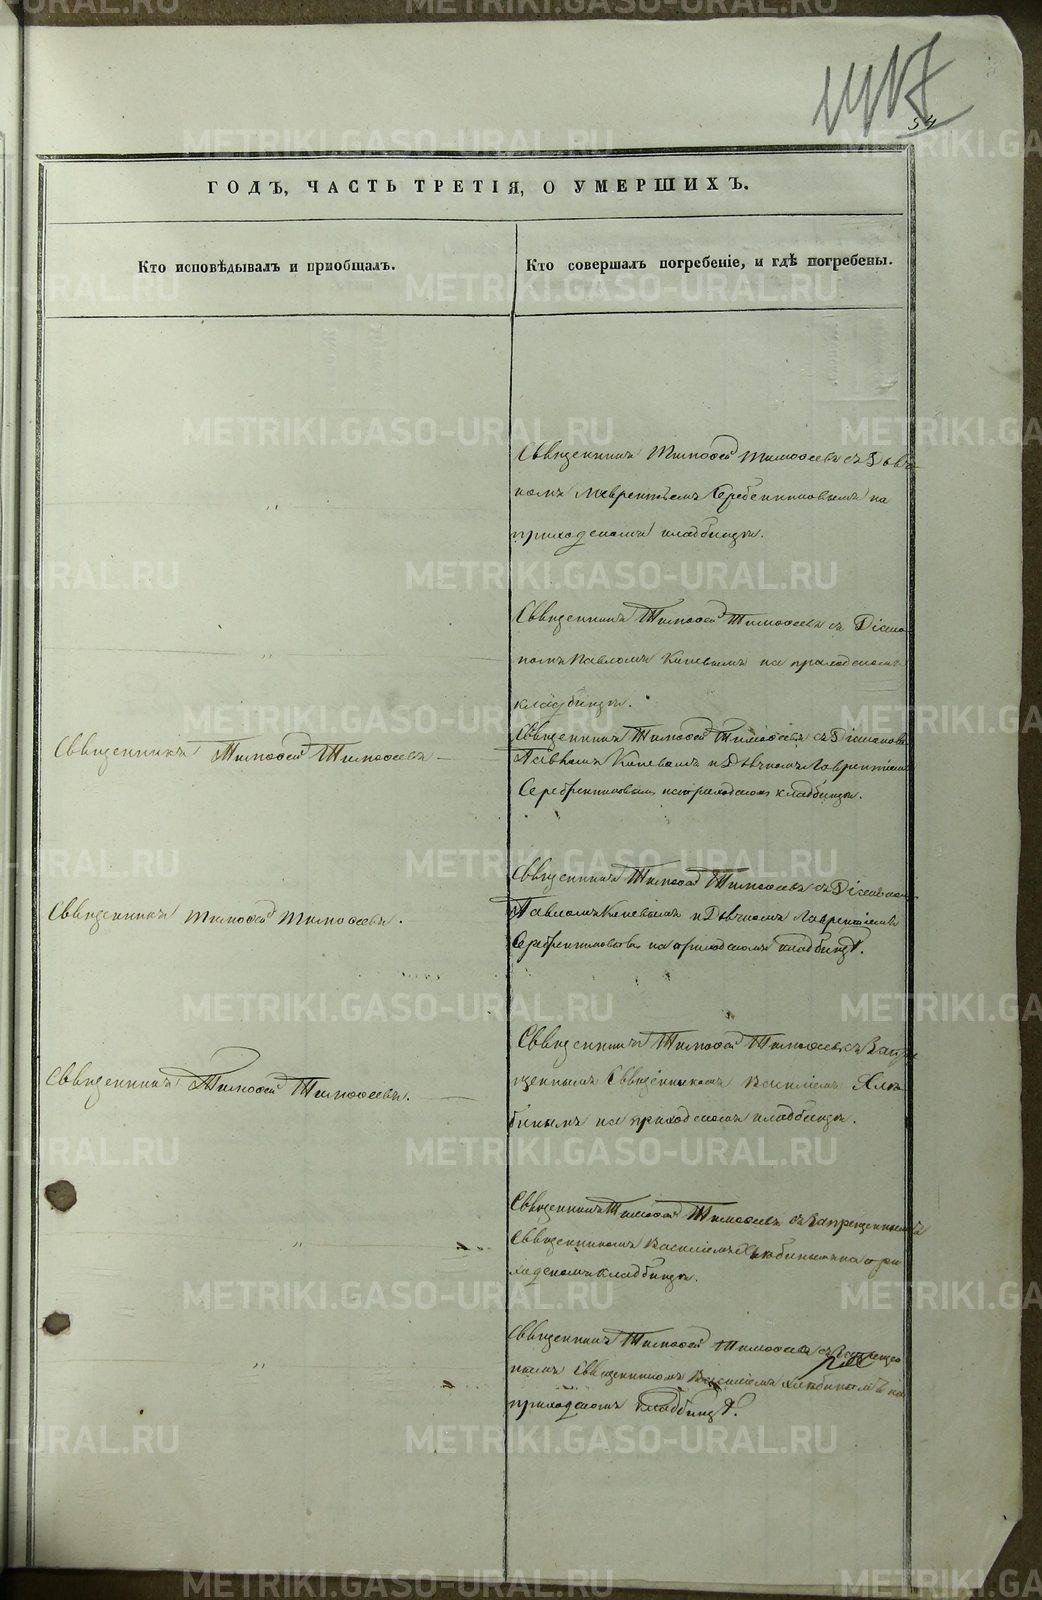 1417
54
ГОДЪ, ЧАСТЬ ТРЕТІЯ, О УМЕРШИХЪ.
Кто исповѣдывалъ и приобщалъ.
Кто совершалъ погребеніе, и гдѣ погребены.
Священникъ Тимофей Тимофеевъ съ Дьяч-
комъ Лаврентьемъ Серебренниковымъ на
приходскомъ кладбищѣ.
"
Священникъ Тимофей Тимофеевъ съ Діако-
номъ Павломъ на приходскомъ
кладбищѣ.
"
Священникъ Тимофей Тимофеевъ
Священникъ Тимофей Тимофеевъ съ Діакономъ
Павломъ и Дьячкомъ Лаврентіемъ
Серебренниковымъ на приходскомъ кладбищѣ.
Священникъ Тимофей Тимофеевъ.
Священникъ Тимофей Тимофеевъ съ Діакономъ
Павломъ и Дьячкомъ Лаврентіемъ
Серебренниковымъ на приходскомъ кладбищѣ.
Священникъ Тимофей Тимофеевъ.
Священникъ Тимофей Тимофеевъ съ Запре-
щеннымъ Священникомъ Василіемъ
на приходскомъ кладбищѣ.
"
Священникъ Тимофей Тимофеевъ съ Запрещеннымъ
Священникомъ Василіемъ на при
ходскомъ кладбищѣ.
"
Священникъ Тимофей Тимофеевъ съ Запрещен
нымъ Священникомъ Василіемъ на
приходскомъ кладбищѣ.
METRIKI.GASO-URAL.RU